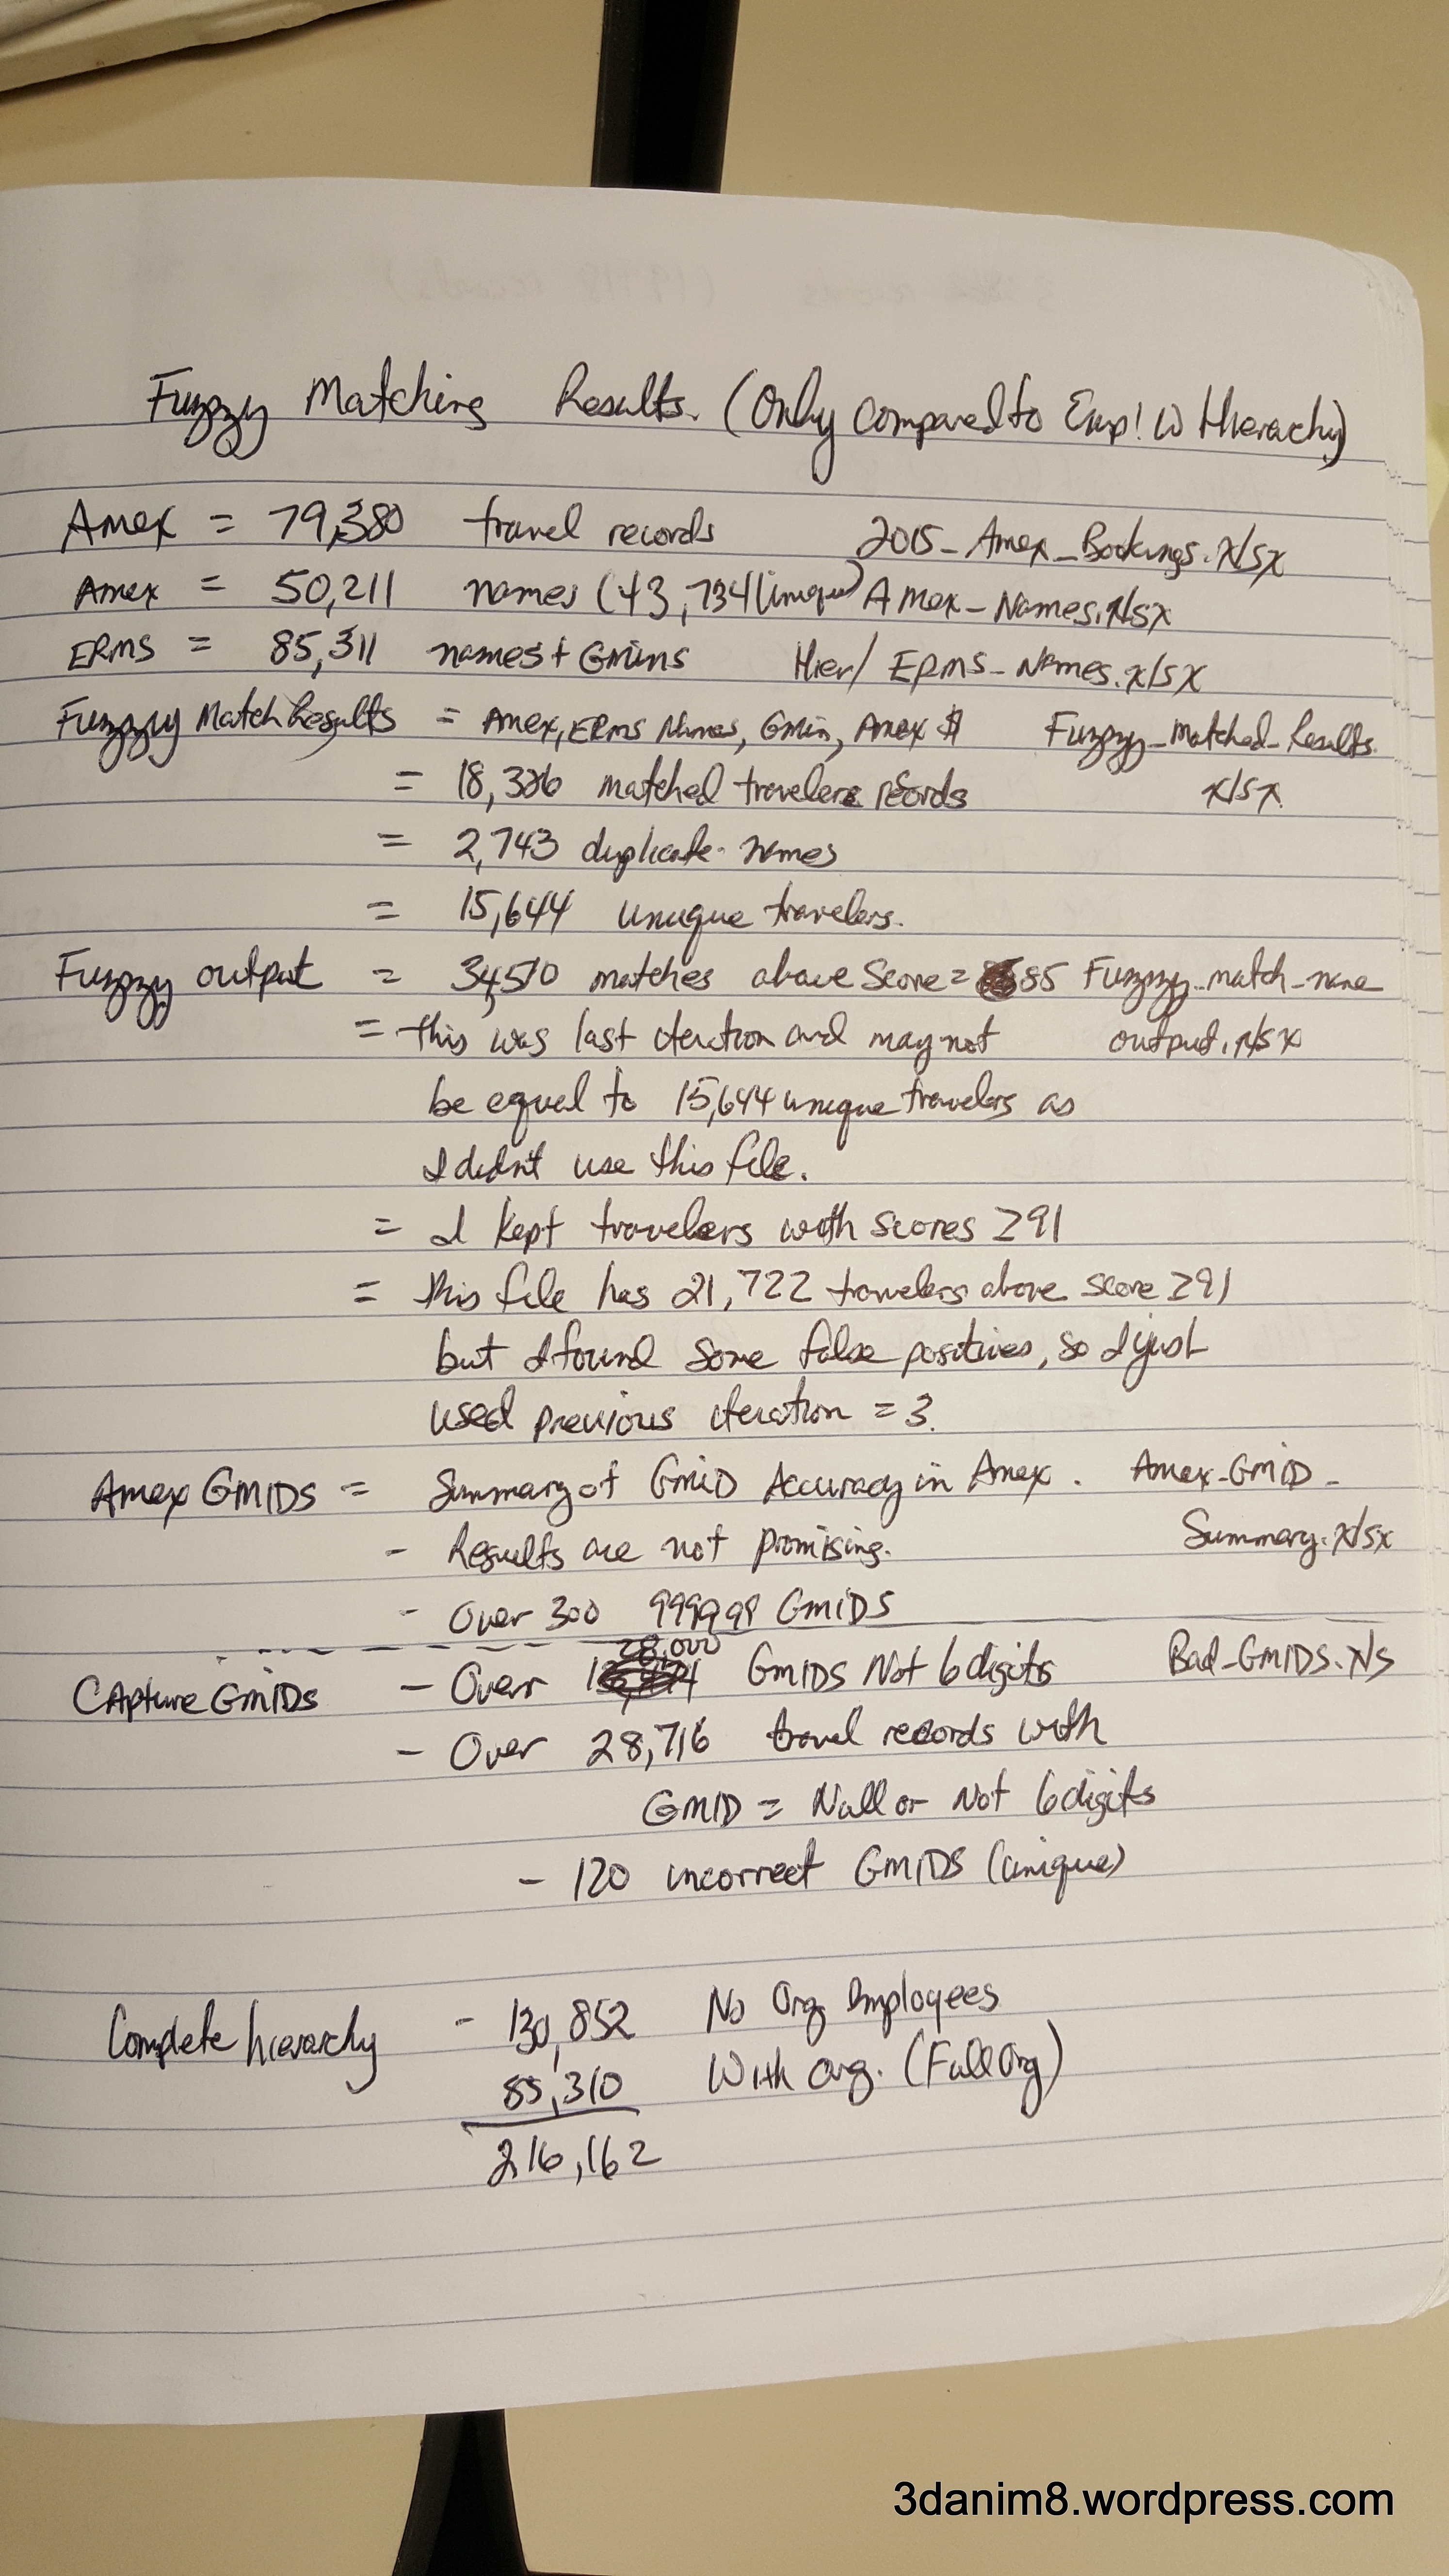 Fuzzy Matching Results. (Only compared to Emp! W Hierachy)
Amex = 79,380 travel records 2015_Amex_Bookings.xlsx
Amex = 50,211 names (43,734 Unique) Amex_Names.xlsx
ERMS = 85,311 names + Gmins Hier/ ERMS_Names.xlsx
Fuzzy Match Results = Amex, ERMS Names, Gmin, Amex $ Fuzzy_Matched_Results.
= 18,386 matched travelers records xlsx
= 2,743 duplicate names
= 15,644 unique travelers.
Fuzzy output = 34,510 matches above Score = 85 Fuzzy_match_name
= this was last iteration and may not output.xlsx
be equal to 15,644 unique travelers as
I didn't use this file.
= I kept travelers with scores ≥91
= this file has 21,722 travelers above score ≥91
but I found some false positives, so I just
used previous iteration = 3.
Amex GMIDS = Summary of GmiD Accuracy in Amex. Amex-GMID-
- Results are not promising. Summary.xlsx
- Over 300 999999 GmiDS
28,000
Capture GmiDs - Over GMIDS Not 6 digits Bad_GMIDS.xls
- Over 28,716 travel records with
GMID = Null or Not 6 digits
- 120 incorrect GMIDS (unique)
Complete hierarchy - 130,852 No Org Employees
85,310 With org. (Full Org)
216,162
3danim8.wordpress.com